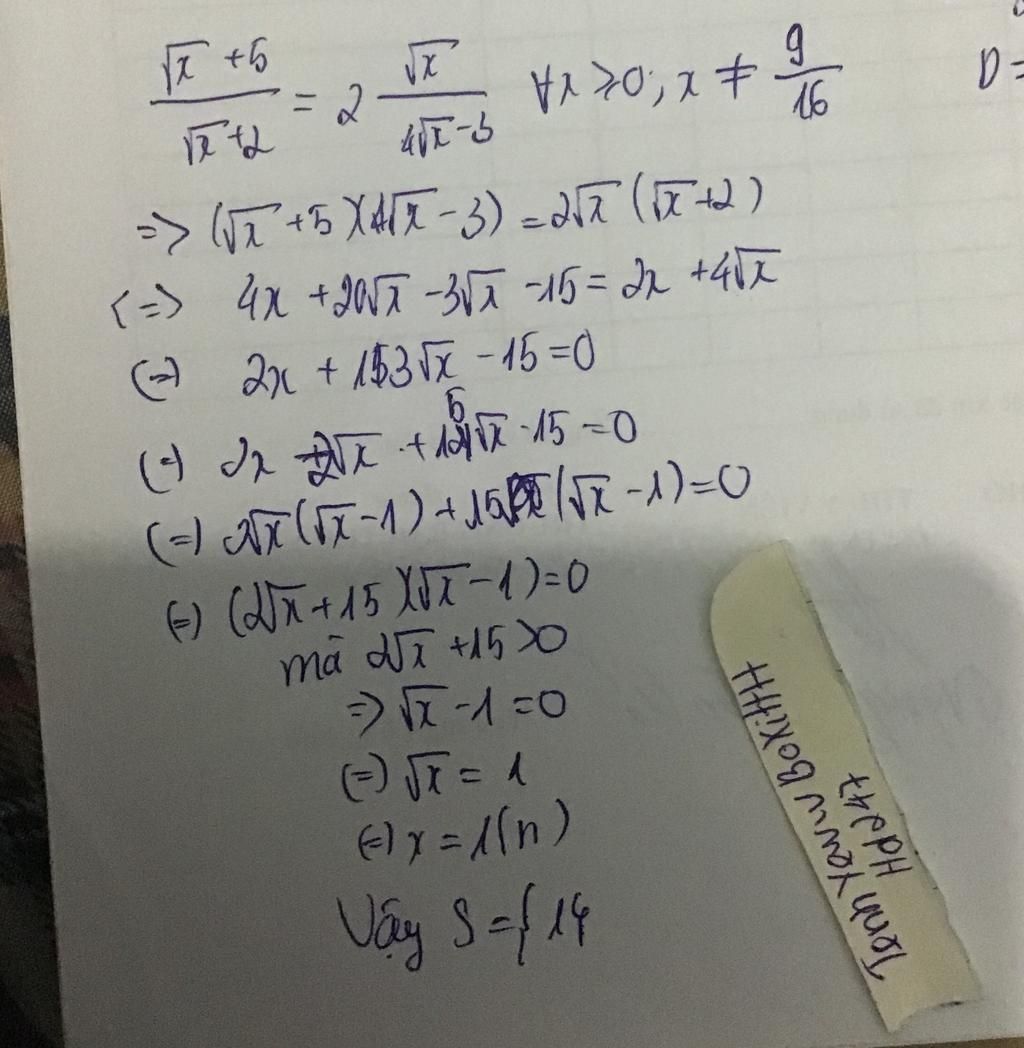 (√x + 5)/(√x + 2) = 2 √x/(4√x - 3) ∀x ≥ 0; x ≠ 9/16
D =
=> (√x + 5)(4√x - 3) = 2√x (√x + 2)
<=> 4x + 20√x - 3√x - 15 = 2x + 4√x
(=) 2x + 13√x - 15 = 0
(=) 2x - 2√x + 15√x - 15 = 0
(=) 2√x (√x - 1) + 15 (√x - 1) = 0
(=) (2√x + 15)(√x - 1) = 0
mà 2√x + 15 > 0
=> √x - 1 = 0
(=) √x = 1
(=) x = 1 (n)
Vậy S = {1}
Hdd47